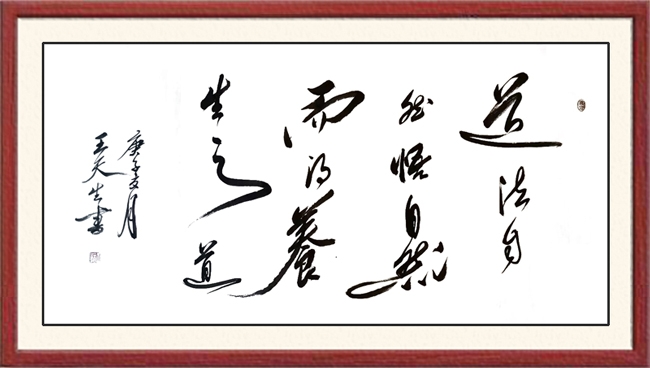 道法自
然悟自然
而得養
生之道
庚子夏月
王天生書